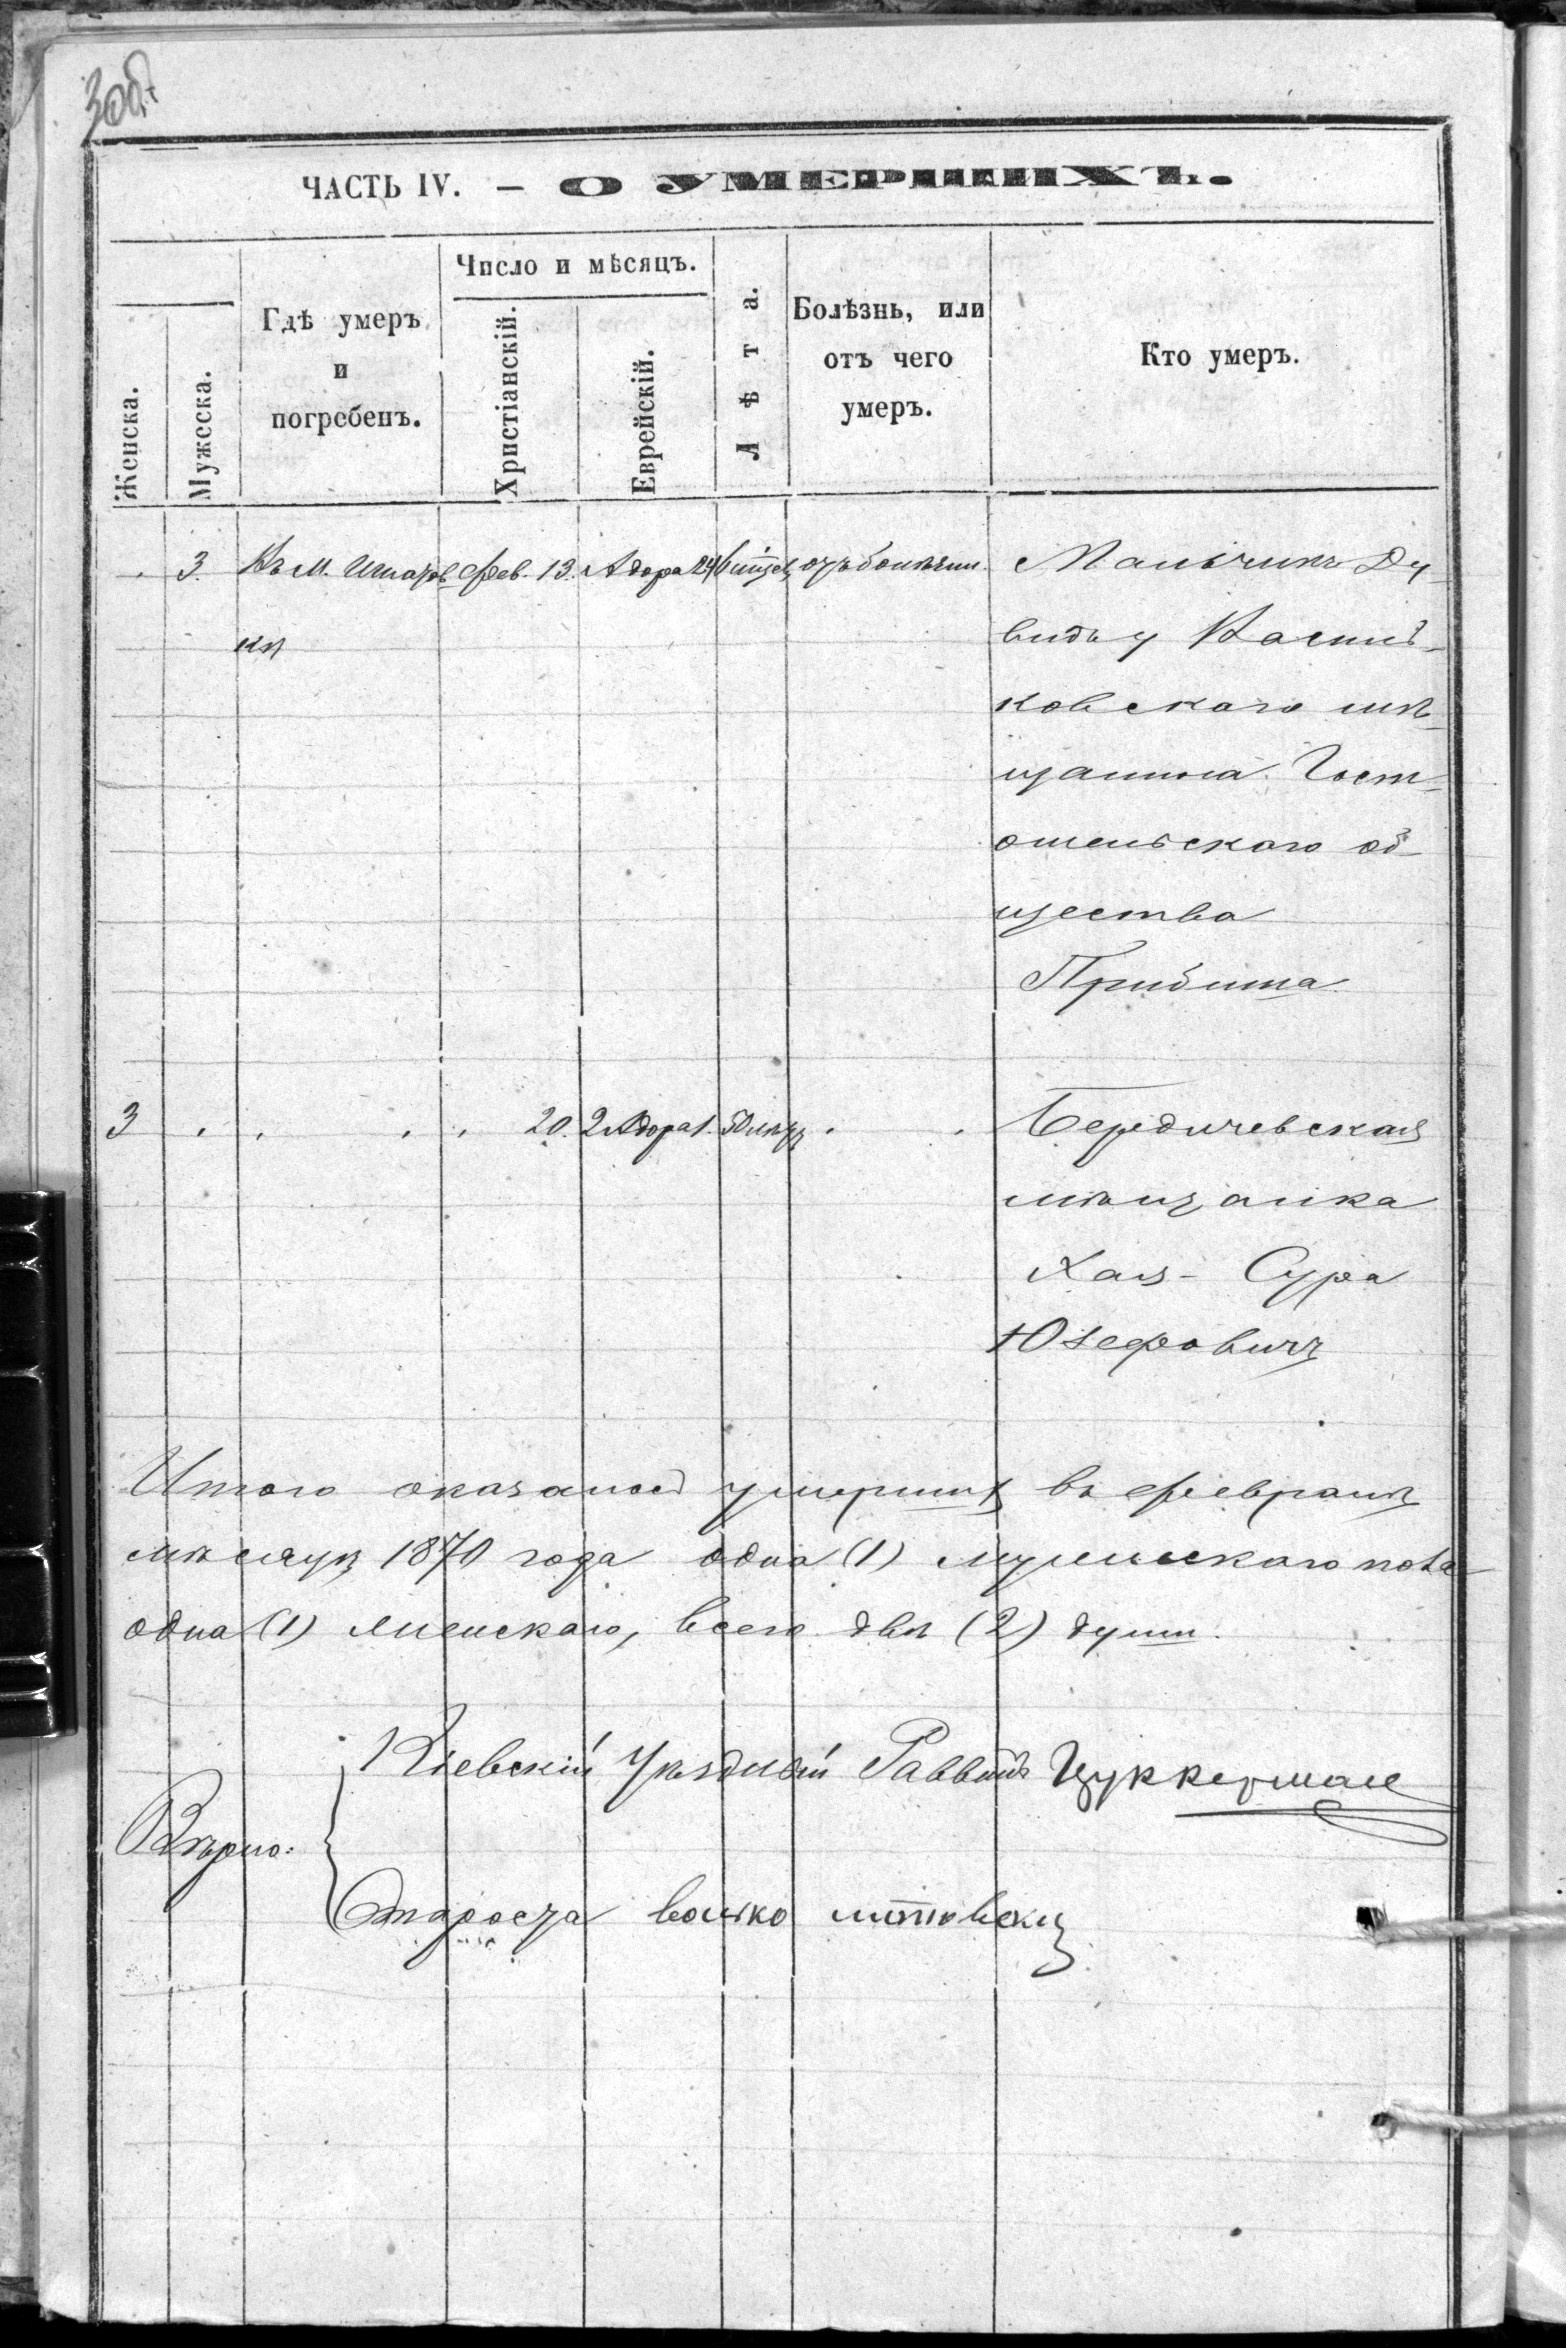 ЧАСТЬ IV. — О УМЕРШИХЪ.
Женска.
Мужеска.
Гдѣ умеръ
и
погребенъ.
Число и мѣсяцъ.
Христіанскій.
Еврейскій.
Лѣта.
Болѣзнь, или
отъ чего
умеръ.
Кто умеръ.
3. Въ М. Фев. 13. Адора 24 6 Мальчикъ Ду
видъ у Василь-
ковскаго мѣ-
щанина Гост-
омельскаго об-
щества
3 20. 2 Адора 1. 50 Бердичевская
мѣщанка
Хая- Сура
Юзефовичъ
Итого оказалось умершихъ въ февралѣ
мѣсяцѣ 1870 года одна (1) мужескаго пола
одна (1) женскаго, всего двѣ (2) души.
Кіевскій Уѣздный Раввинъ Цуккерман
Вѣрно:
Староста волько литовски